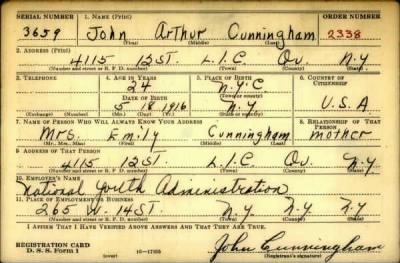 SERIAL NUMBER 1. NAME (Print) ORDER NUMBER
3659 John Arthur Cunningham 2338
(First) (Middle) (Last)
2. ADDRESS (Print)
4115 12 ST. L.I.C. Qu. N.Y.
(Number and street or R. F. D. number) (Town) (County) (State)
3. TELEPHONE 4. AGE IN YEARS 5. PLACE OF BIRTH 6. COUNTRY OF CITIZENSHIP
24 N.Y.C.
DATE OF BIRTH
5 18 1916 N.Y. U.S.A
7. NAME OF PERSON WHO WILL ALWAYS KNOW YOUR ADDRESS 8. RELATIONSHIP OF THAT PERSON
Mrs. Emily Cunningham mother
(Mr., Mrs., Miss) (First) (Middle) (Last)
9. ADDRESS OF THAT PERSON
4115 12 ST. L.I.C. Qu. N.Y.
(Number and street or R. F. D. number) (Town) (County) (State)
10. EMPLOYER'S NAME
National Youth Administration
11. PLACE OF EMPLOYMENT OR BUSINESS
265 W. 14 ST. N.Y. N.Y. N.Y.
(Number and street or R. F. D. number) (Town) (County) (State)
I AFFIRM THAT I HAVE VERIFIED ABOVE ANSWERS AND THAT THEY ARE TRUE.
REGISTRATION CARD
D. S. S. Form 1 (over) John Cunningham
(Registrant's signature)